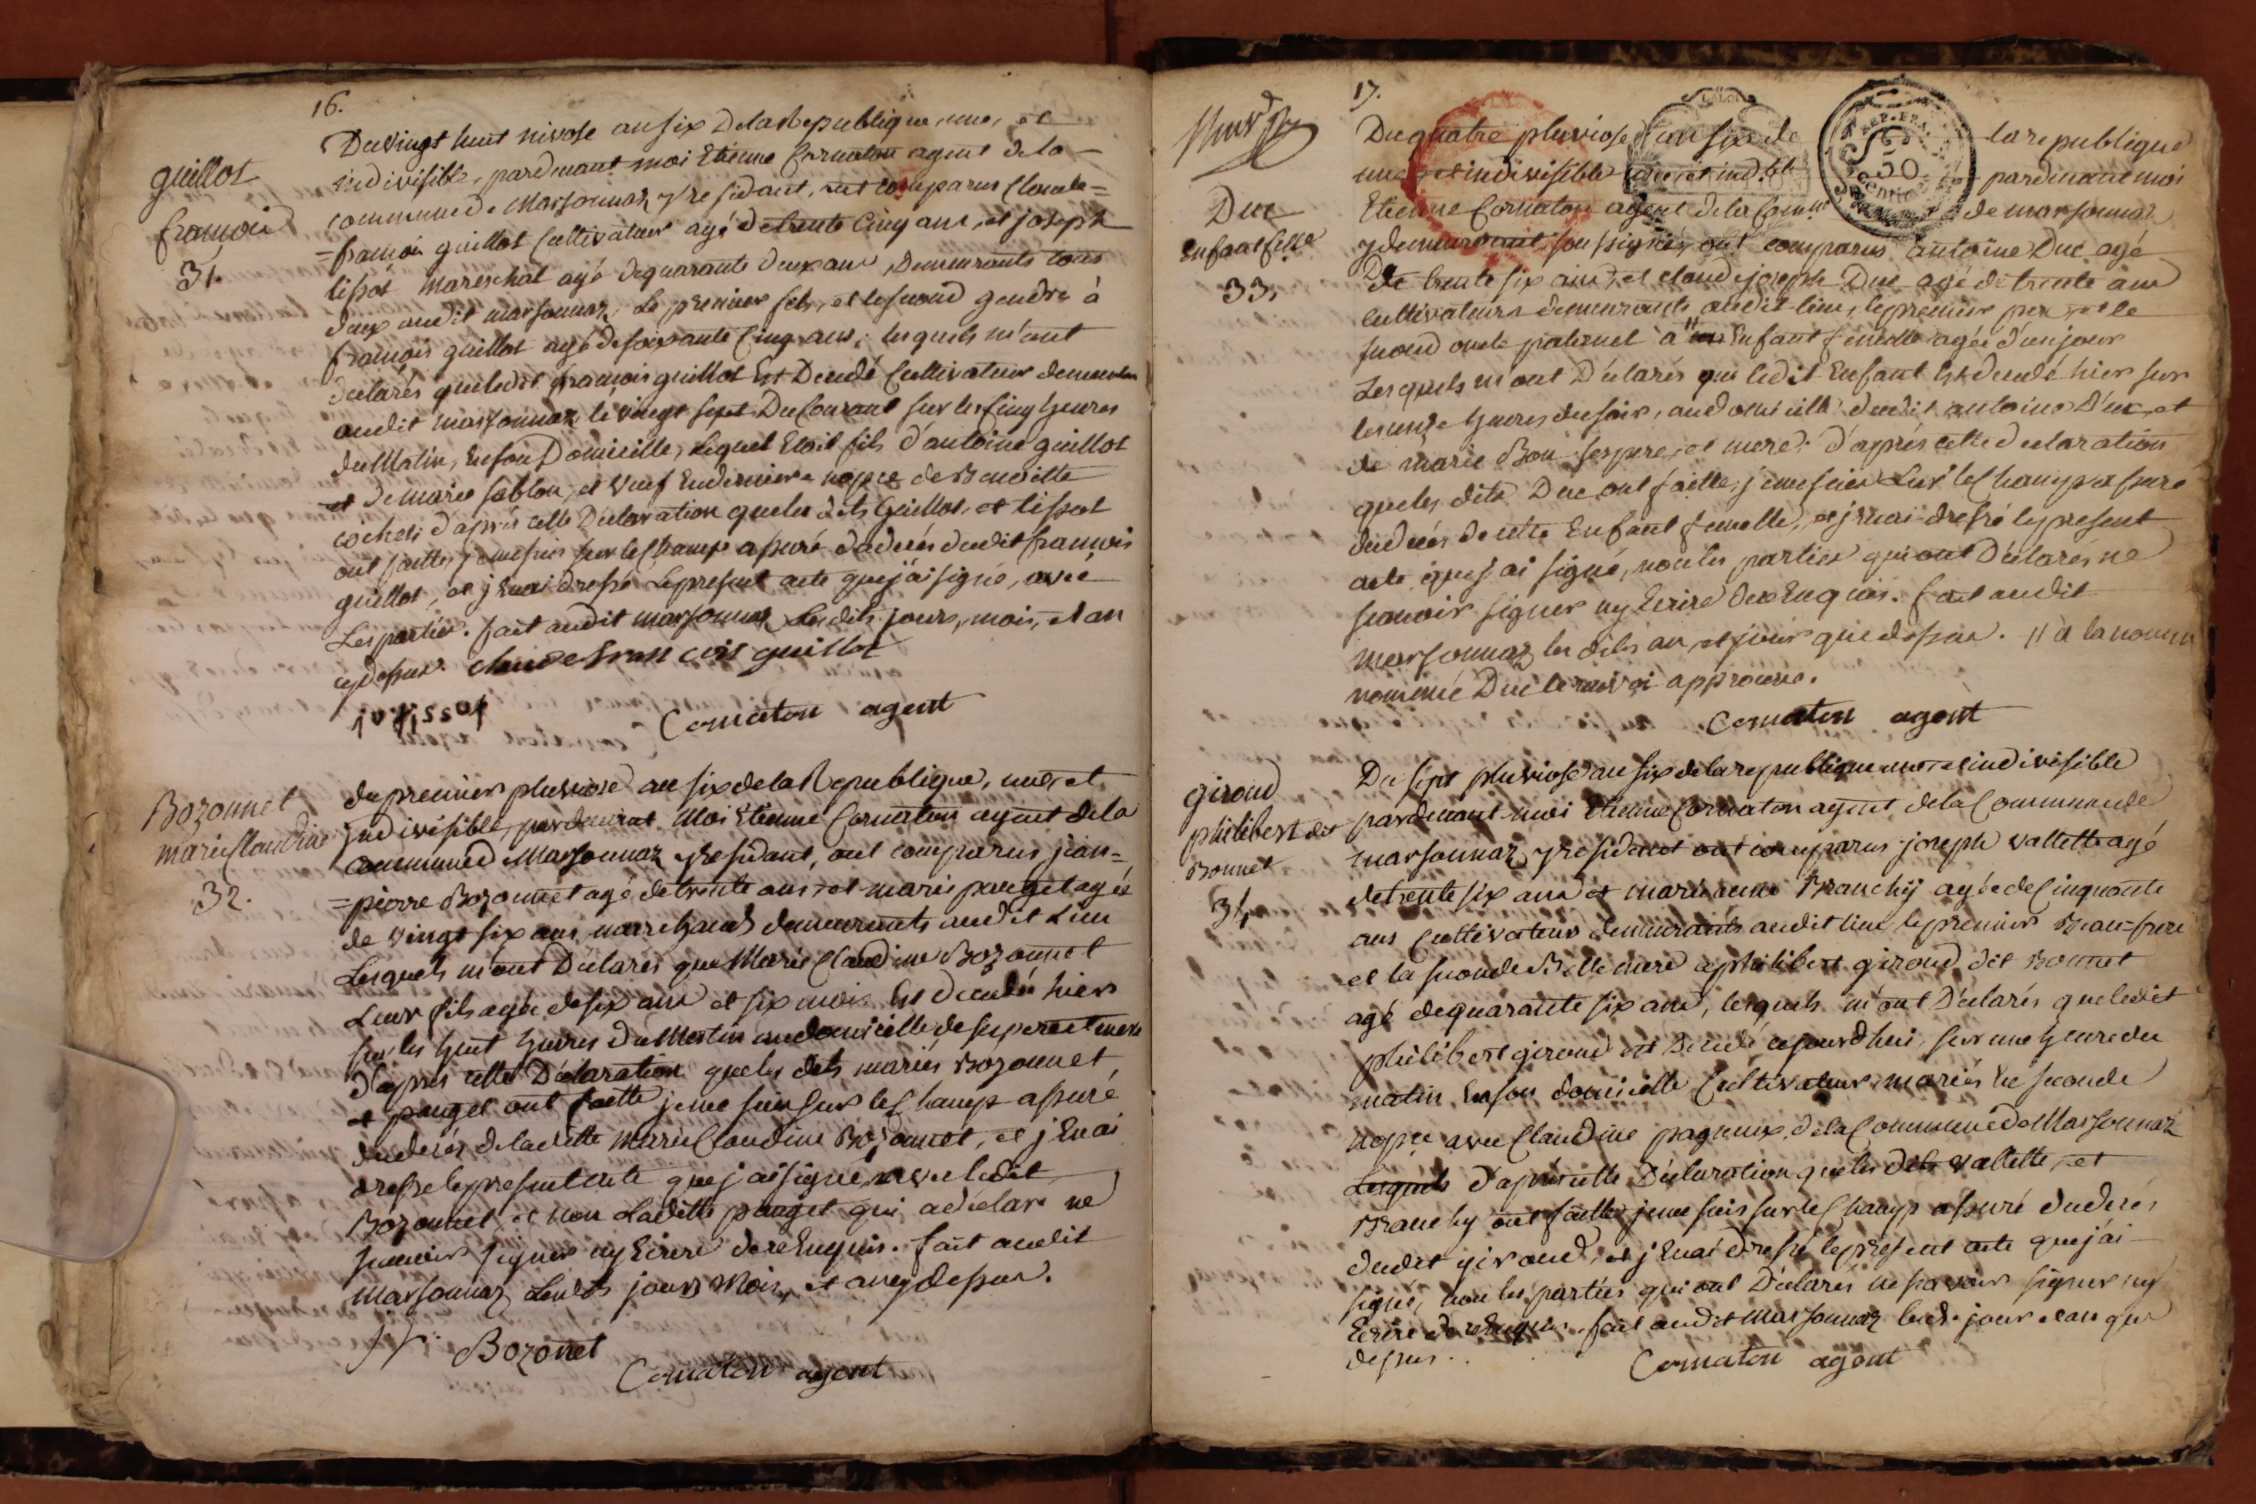 16.
guillot
françois
31.
Du vingt huit nivose an six De la Republique, une, et
indivisible, pardevant moi Etienne Cornaton agent de la
commune de Marsonnaz y residant, ont comparus Claude=
=françois guillot Cultivateur agé de trente Cinq ans, et joseph
tissot mareschal agé de quarante deux ans, Demeurants tous
deux audit marsonnaz, Le premier fils, et le second gendre à
françois guillot agé de soixante Cinq ans; lesquels m'ont
declarés que ledit françois guillot Est Decedé Cultivateur demeurant
audit marsonnaz le vingt sept Du Courant sur les Cinq heures
du Matin, En son Domicille, Lequel Etoit fils d'antoine guillot
et de marie sablon, et veuf En derniere nopce de Benoitte
cochet; d'aprés cette Declaration que les dits Guillot, et tissot
ont faitte, je me suis sur le Champ assuré du decés dudit françois
guillot, et j'En ai dressé Le present acte que j'ai signé, avec
Les parties. fait audit marsonnaz Les dits jours, mois, et an
cy dessus. claude fran cois guillot
j tissot
Cornaton agent
Bozonnet
marie Claudine
32.
du premier pluviose an six de la Republique, une, et
Indivisible, pardevant Moi Etienne Cornaton agent de la
commune de Marsonnaz y residant, ont comparus jean=
=pierre Bozonnet agé de trente ans et marie pauget agée
de vingt six ans marchands demeurants audit Lieu
Lesquels m'ont Declarés que Marie Claudine Bozonnet
Leur fils agée de six ans et six mois Est decedée hier
sur les huit heures du Matin au domicille de ses pere et mere
d'aprés cette Declaration que les dits mariés Bozonnet
et pauget ont faitte je me suis sur le Champ assuré
du decés de la ditte Marie Claudine Bozonnet, et j'En ai
dressé le present acte que j'ai signé, avec ledit
Bozonnet et non Laditte pauget qui a déclaré ne
sçavoir signer ny Ecrire de ce Enquis. fait audit
marsonnaz Les dts jours Mois, et an cy dessus.
Bozonet
Cornaton agent
17.
Duc
Enfant fille
33.
Du quatre pluviose an six de la republique
une et indivisible pardevant moi
Etienne Cornaton agent de la Comne de marsonnaz
y demeurant soussigné, ont comparus antoine Duc agé
de trente six ans, et claude joseph Duc agé de trente ans
cultivateurs demeurants audit lieu, le premier pere, et le
second oncle paternel à // un Enfant femelle agée d'un jour
Lesquels m'ont Déclarés que ledit Enfant Est decedé hier sur
les onze heures du soir, au domicille dudit antoine Duc, et
de marie Bon ses pere, et mere; d'aprés cette declaration
que les dits Duc ont faitte, je me suis sur le Champ assuré
du decés de cette Enfant femelle, et j'En ai dressé le present
acte que j'ai signé, non les parties qui ont Déclarés ne
scavoir signer ny Ecrire de ce Enquis. fait audit
marsonnaz les dits an, et jour que dessus. // à la
nommé Duc le renvoi approuvé.
Cornaton agent
giroud
philibert dit
Bonnet
34
Du sept pluviose an six de la republique une et indivisible
pardevant moi Etienne Cornaton agent de la Commune de
marsonnaz y residant ont comparus joseph vallette agé
de trente six ans et marie anne Branchy agée de Cinquante
ans Cultivateurs demeurants audit lieu le premier Beau=frere
et la seconde Belle mere à philibert giroud dit Bonnet
agé de quarante six ans, lesquels m'ont Déclarés que ledit
philibert giroud est Decedé ajourd'hui, sur une heure du
matin En son domicille Cultivateur mariés En seconde
nopce avec Claudine pagneux de la Commune de Marsonnaz
Lesquels d'aprés cette Déclaration que les dits vallette, et
Branchy ont faitte, je me suis sur le Champ assuré du decés
dudit giroud, et j'En ai dressé le present acte que j'ai
signé, non les parties qui ont Déclarés ne scavoir signer ny
Ecrire de ce Enquis. fait audit Marsonnaz les d. jour et an que
dessus.
Cornaton agent
REP. FRA.
50
centimes